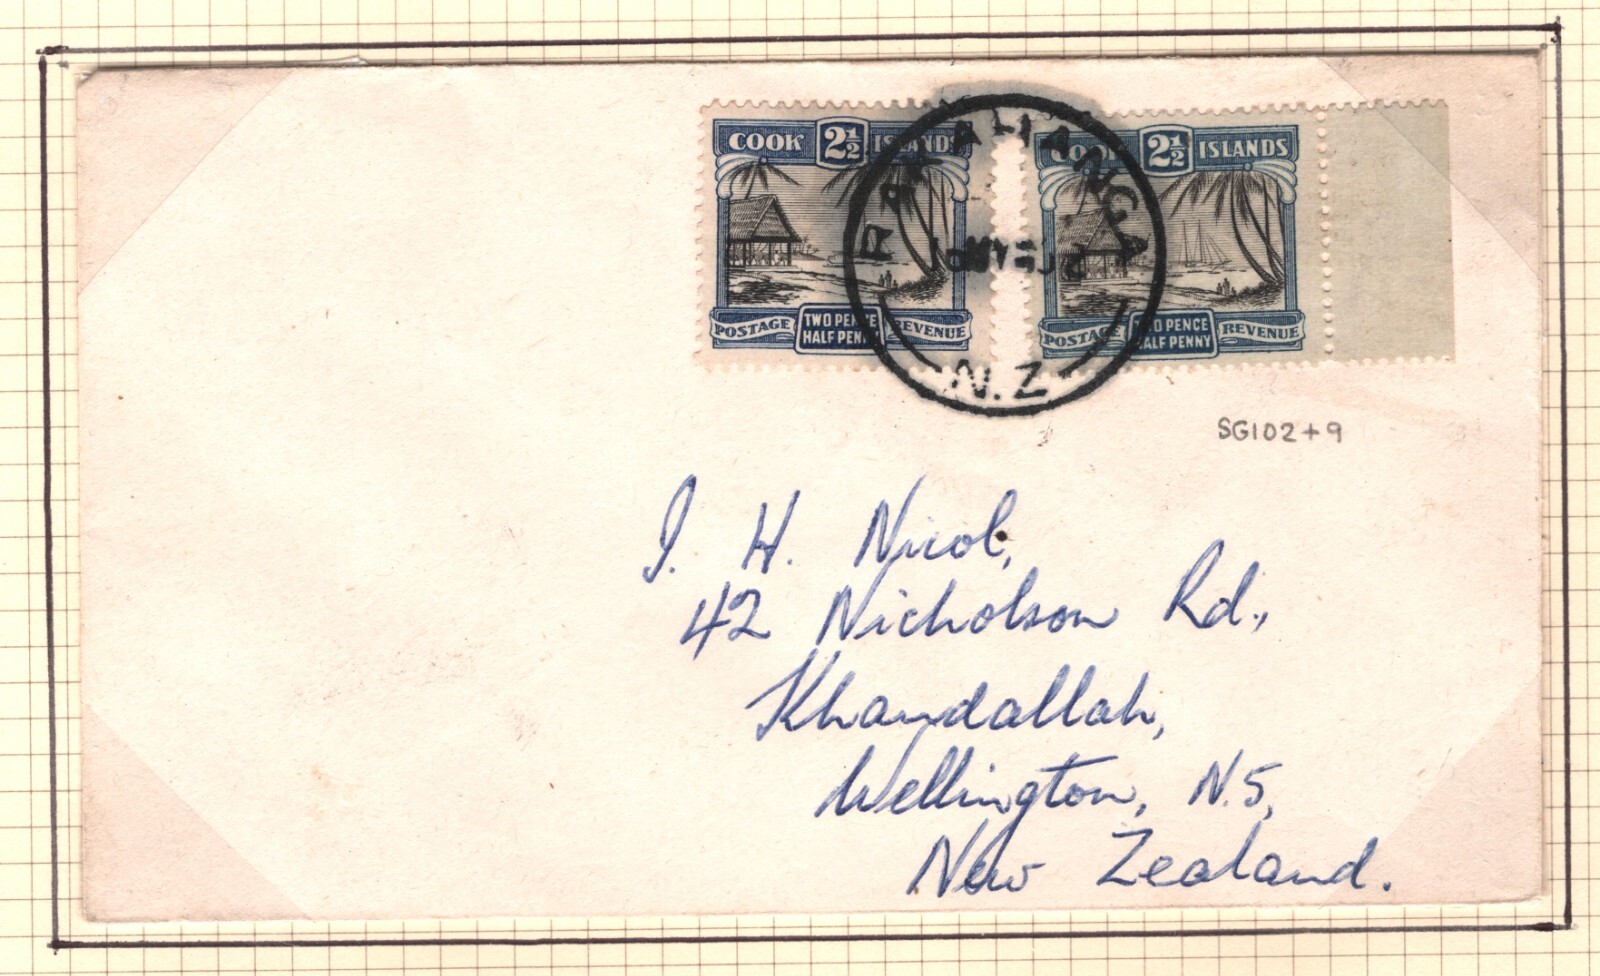 COOK 2½ ISLANDS
POSTAGE TWO PENCE HALF PENNY REVENUE
COOK 2½ ISLANDS
POSTAGE TWO PENCE HALF PENNY REVENUE
RAKAHANGA
N.Z
SG102+9
I. H. Nicol,
42 Nicholson Rd.,
Khandallah,
Wellington, N.5,
New Zealand.